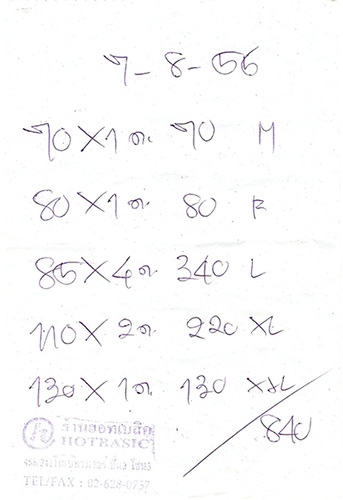 7-8-56
70X1 ด. 70 M
80X1 ด. 80 F
85X4ด. 340 L
110X2ด. 220 XL
130X1ด. 130 XXL
840
ร้านฮอทเบสิค
HOTBASIC
TEL/FAX : 02-628-0757